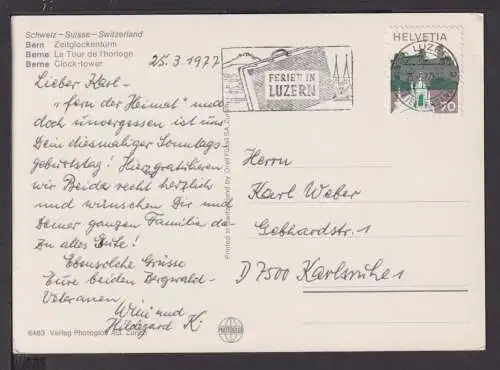 Schweiz – Suisse – Switzerland
Bern Zeitglockenturm
Berne La Tour de l'horloge
Berne Clock-tower
25.3.1977
Lieber Karl –
"fern der Heimat" und
doch unvergessen ist uns
Dein diesmaliger Sonntags-
geburtstag! Hierz. gratulieren
wir Beide recht herzlich
und wünschen Dir und
Deiner ganzen Familie da-
zu alles Gute!
Ebensolche Grüsse
Eure beiden Bergwald-
Veteranen
Willi und
Hildegard K.
6483 Verlag Photoglob AG, Zürich
Printed in Switzerland by Orell Füssli SA, Zürich
FERIEN IN
LUZERN
HELVETIA
LUZERN
20
Herrn
Karl Weber
Gebhardstr. 1
D 7500 Karlsruhe 1